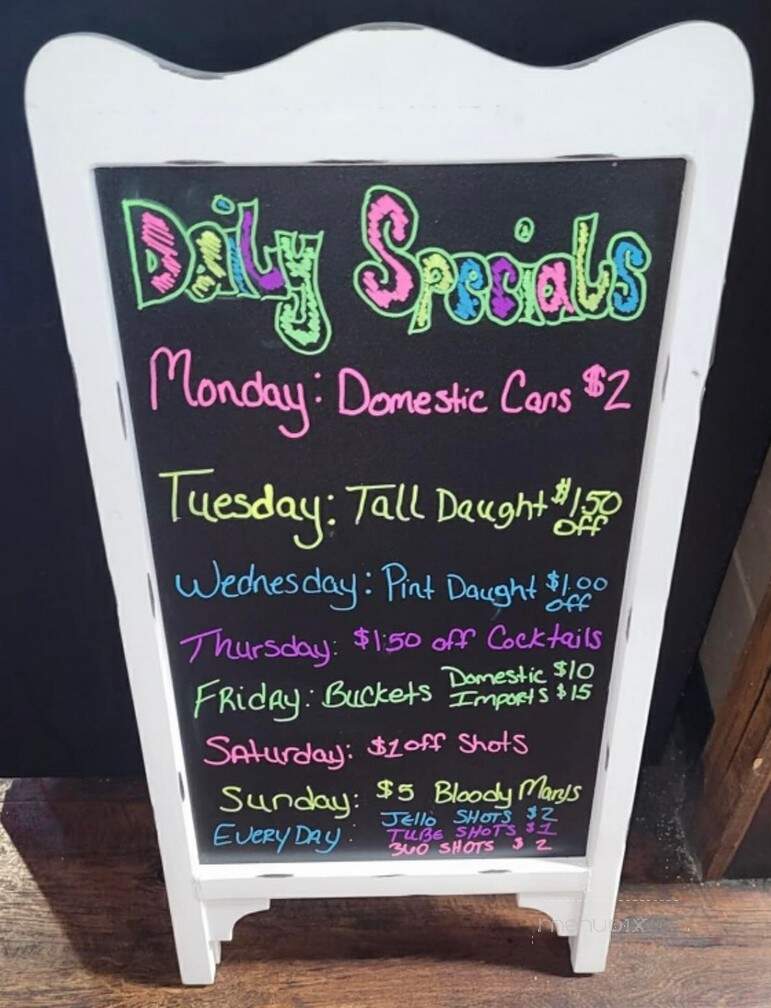 Daily Specials
Monday: Domestic Cans $2
Tuesday: Tall Daught $1.50 off
Wednesday: Pint Daught $1.00 off
Thursday: $1.50 off Cocktails
Friday: Buckets Domestic $10
Imports $15
Saturday: $1 off Shots
Sunday: $5 Bloody Marys
EveryDay: Jello SHOTS $2
TUBE SHOTS $1
360 SHOTS $2
menupix